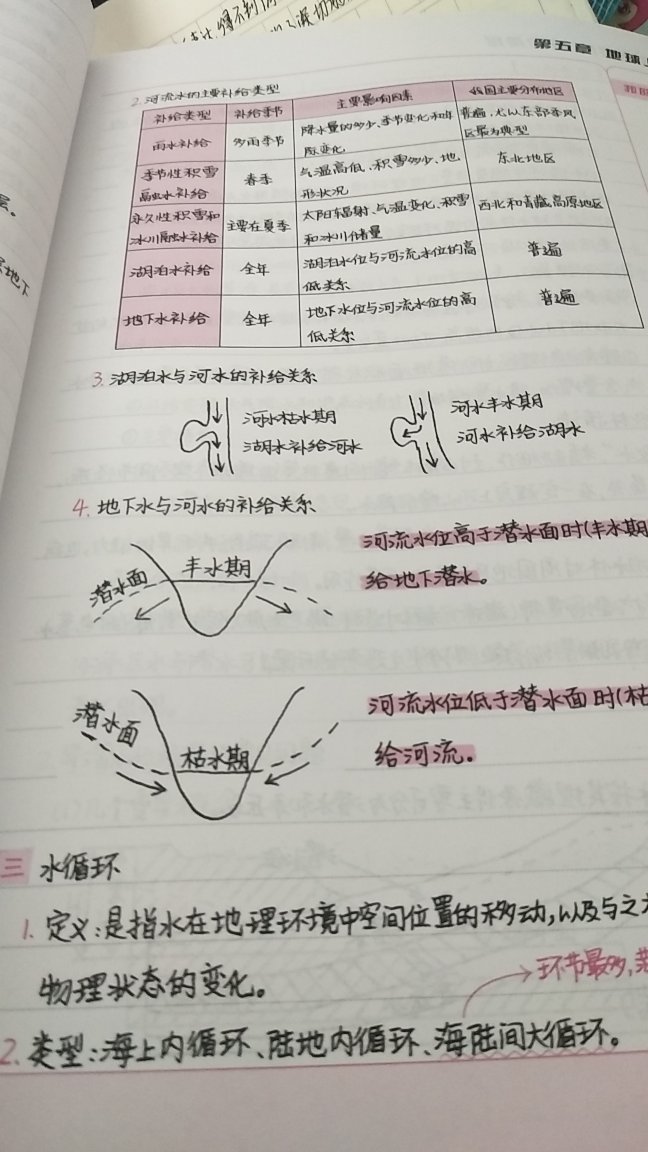 第五章 地球
2.河流水的主要补给类型
补给类型 补给季节 主要影响因素 我国主要分布地区
雨水补给 多雨季节 降水量的多少、季节变化和年际变化 普遍,尤以东部季风区最为典型
季节性积雪融水补给 春季 气温高低、积雪多少、地形状况 东北地区
永久性积雪和冰川融水补给 主要在夏季 太阳辐射、气温变化、积雪和冰川储量 西北和青藏高原地区
湖泊水补给 全年 湖泊水位与河流水位的高低关系 普遍
地下水补给 全年 地下水位与河流水位的高低关系 普遍
3.湖泊水与河水的补给关系
河水枯水期
湖水补给河水
河水丰水期
河水补给湖水
4.地下水与河水的补给关系
潜水面
丰水期
河流水位高于潜水面时(丰水期
给地下潜水。
潜水面
枯水期
河流水位低于潜水面时(枯
给河流。
三 水循环
1.定义:是指水在地理环境中空间位置的移动,以及与之
物理状态的变化。
环节最多,
2.类型:海上内循环、陆地内循环、海陆间大循环。